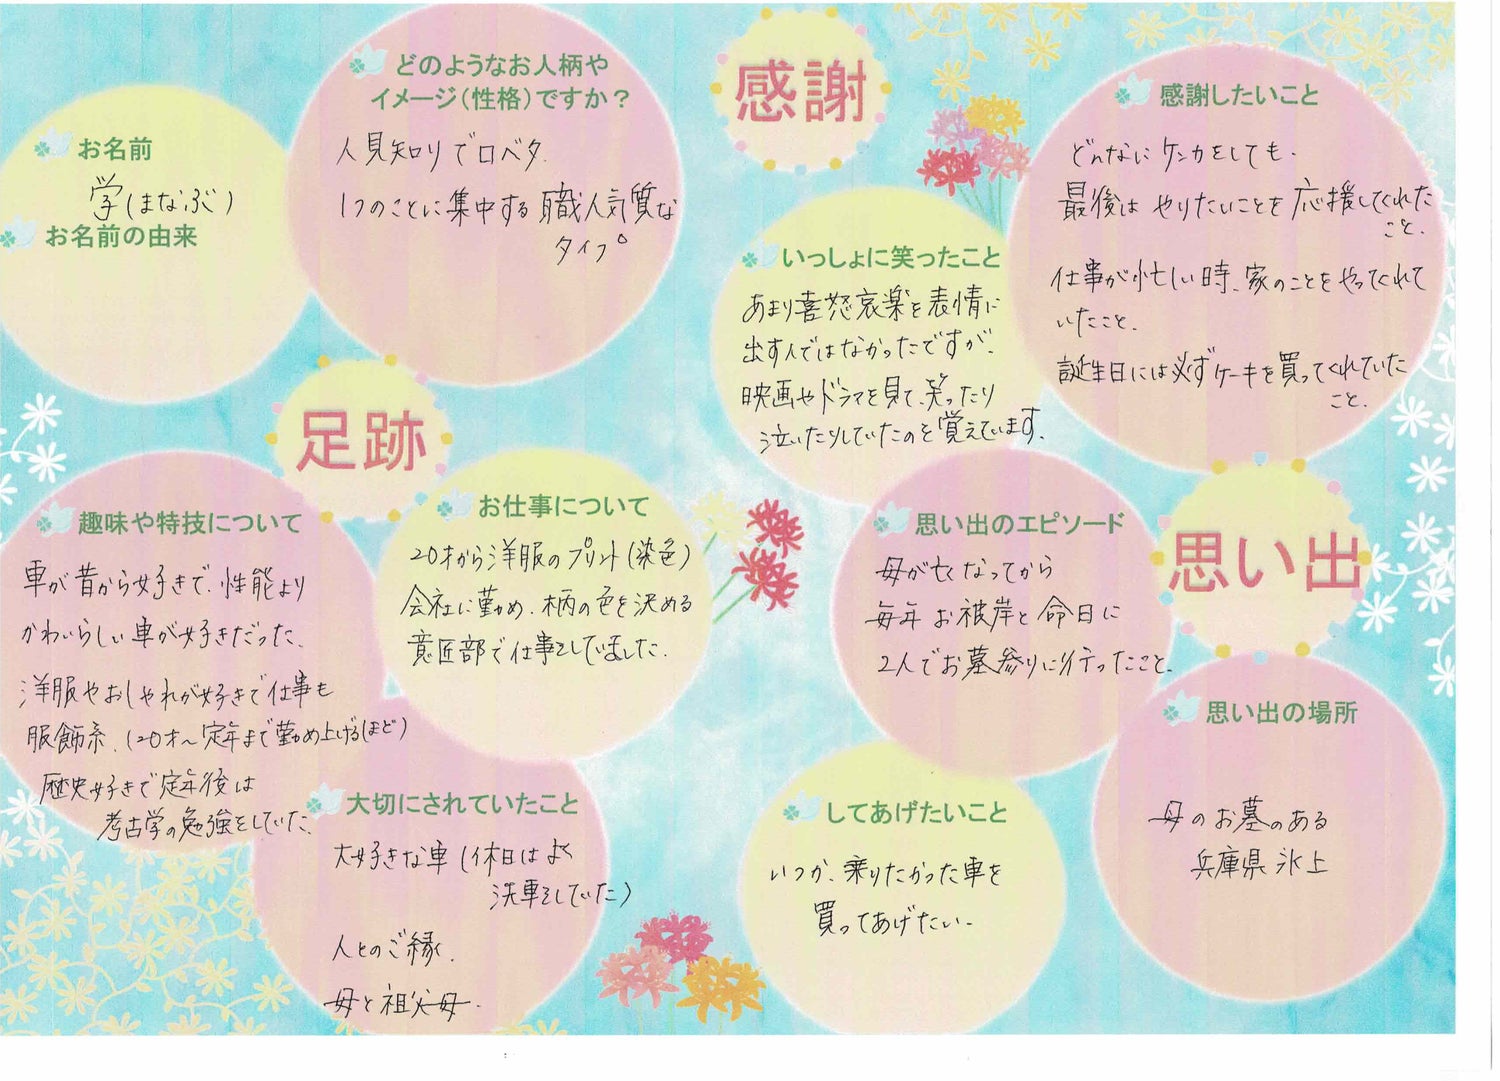 お名前
学(まなぶ)
お名前の由来
どのようなお人柄や
イメージ(性格)ですか?
人見知りで口ベタ.
1つのことに集中する職人気質な
タイプ。
足跡
趣味や特技について
車が昔から好きで、性能より
かわいらしい車が好きだった、
洋服やおしゃれが好きで仕事も
服飾系、(20才〜定年まで勤め上げるほど)
歴史好きで定年後は
考古学の勉強をしていた、
お仕事について
20才から洋服のプリント(染色)
会社に勤め、柄の色を決める
意匠部で仕事をしていました.
大切にされていたこと
大好きな車(休日はよく
洗車をしていた)
人とのご縁.
母と祖父母.
感謝
感謝したいこと
どんなにケンカをしても、
最後は やりたいことを 応援してくれた
こと、
仕事が忙しい時、家のことをやってくれて
いたこと、
誕生日には必ずケーキを買ってくれていた
こと、
いっしょに笑ったこと
あまり喜怒哀楽を表情に
出す人ではなかったですが、
映画やドラマを見て、笑ったり
泣いたりしていたのを覚えています.
思い出
思い出のエピソード
母が亡くなってから
毎年お彼岸と命日に
2人でお墓参りに行ったこと、
思い出の場所
母のお墓のある
兵庫県氷上
してあげたいこと
いつか、乗りたかった車を
買ってあげたい、